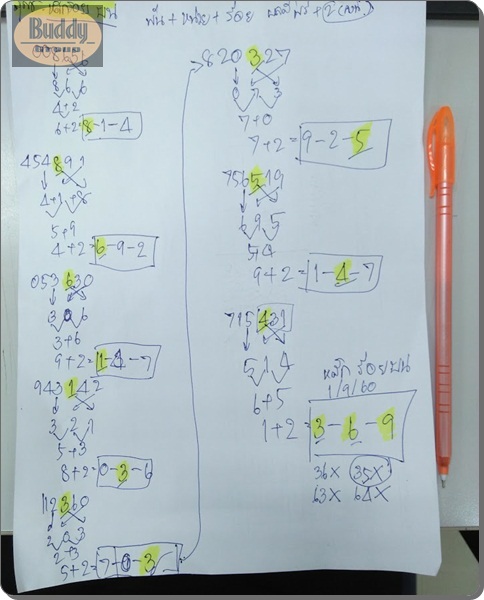 Buddy
Group
พัน + หน่วย + ร้อย
008656
8 6 6
4+2
6+2=8-1-4
454891
4+1+8
5+9
4+2=6-9-2
053630
3 0 6
3+6
9+2=1-4-7
943142
3 2 1
5+3
8+2=0-3-6
112360
2 0 3
2+3
5+2=7-0-3
820327
0 7 3
7+0
7+2=9-2-5
756519
6 9 5
9+2=1-4-7
715431
5 1 4
6+5
1+2=3-6-9
หลักร้อยบน
1/9/60
36X 35X
63X 64X